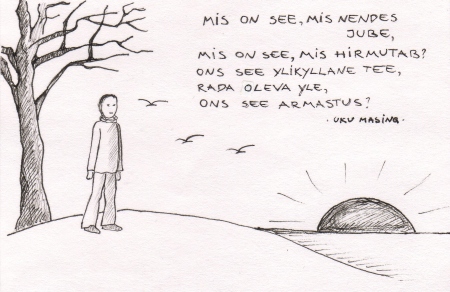 MIS ON SEE, MIS NENDES
JUBE,
MIS ON SEE, MIS HIRMUTAB?
ONS SEE YLIKYLLANE TEE,
RADA OLEVA YLE,
ONS SEE ARMASTUS?
· UKU MASING ·